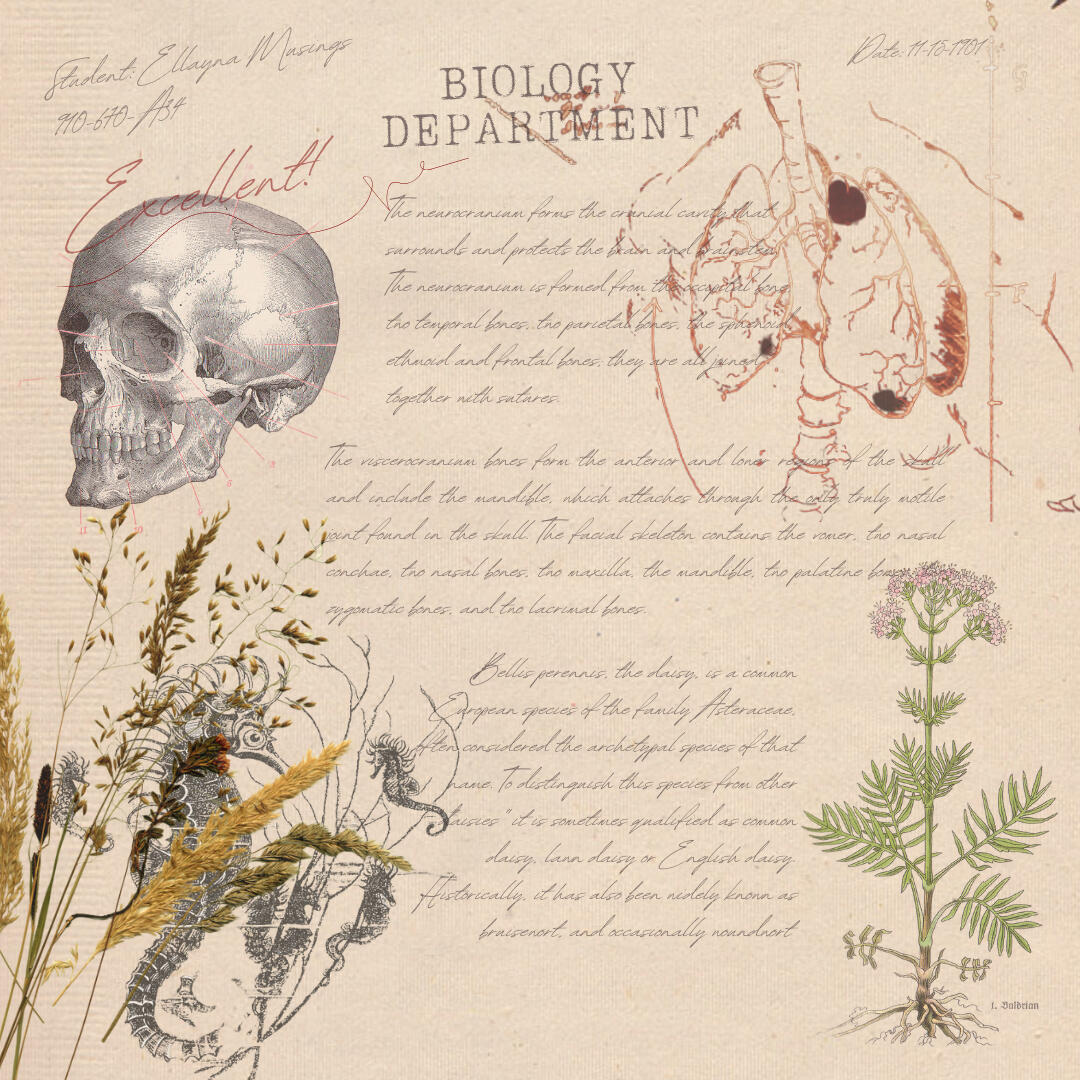 Student: Ellayna Musings
910-670-A34
Date: 11-15-1901
BIOLOGY
DEPARTMENT
Excellent!
The neurocranium forms the cranial cavity that
surrounds and protects the brain and brainstem.
The neurocranium is formed from the occipital bone,
two temporal bones, two parietal bones, the sphenoid,
ethmoid and frontal bones, they are all joined
together with sutures.
The viscerocranium bones form the anterior and lower regions of the skull
and include the mandible, which attaches through the only truly motile
joint found in the skull. The facial skeleton contains the vomer, two nasal
conchae, two nasal bones, two maxilla, the mandible, two palatine bones,
zygomatic bones, and two lacrimal bones.
Bellis perennis, the daisy, is a common
European species of the family Asteraceae,
often considered the archetypal species of that
name. To distinguish this species from other
"daisies" it is sometimes qualified as common
daisy, lawn daisy or English daisy.
Historically, it has also been widely known as
bruisewort, and occasionally woundwort
1. Baldrian